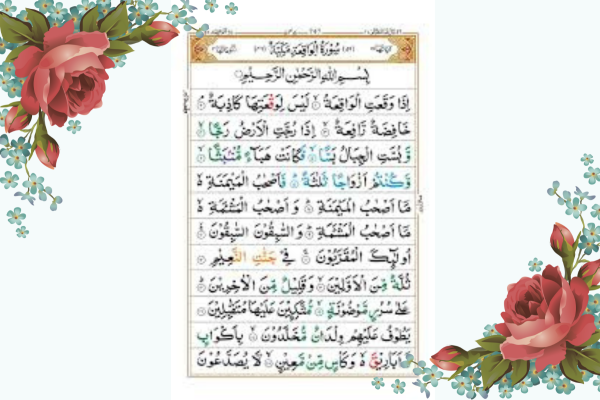 سُوْرَةُ الْوَاقِعَةِ مَكِّيَّةٌ
بِسْمِ اللّٰهِ الرَّحْمٰنِ الرَّحِيْمِ
اِذَا وَقَعَتِ الْوَاقِعَةُ ۙ لَيْسَ لِوَقْعَتِهَا كَاذِبَةٌ ۘ
خَافِضَةٌ رَّافِعَةٌ ۙ اِذَا رُجَّتِ الْاَرْضُ رَجًّا ۙ
وَّبُسَّتِ الْجِبَالُ بَسًّا ۙ فَكَانَتْ هَبَآءً مُّنْۢبَثًّا ۙ
وَّكُنْتُمْ اَزْوَاجًا ثَلٰثَةً ؕ فَاَصْحٰبُ الْمَيْمَنَةِ ۙ
مَاۤ اَصْحٰبُ الْمَيْمَنَةِ ؕ وَ اَصْحٰبُ الْمَشْـَٔمَةِ ۙ
مَاۤ اَصْحٰبُ الْمَشْـَٔمَةِ ؕ وَ السّٰبِقُوْنَ السّٰبِقُوْنَ ۚ
اُولٰٓئِكَ الْمُقَرَّبُوْنَ ۚ فِيْ جَنّٰتِ النَّعِيْمِ
ثُلَّةٌ مِّنَ الْاَوَّلِيْنَ ۙ وَقَلِيْلٌ مِّنَ الْاٰخِرِيْنَ ؕ
عَلٰى سُرُرٍ مَّوْضُوْنَةٍ ۙ مُّتَّكِـِٕيْنَ عَلَيْهَا مُتَقٰبِلِيْنَ
يَطُوْفُ عَلَيْهِمْ وِلْدَانٌ مُّخَلَّدُوْنَ ۙ بِاَكْوَابٍ
وَّاَبَارِيْقَ ۙ وَكَاْسٍ مِّنْ مَّعِيْنٍ ۙ لَّا يُصَدَّعُوْنَ